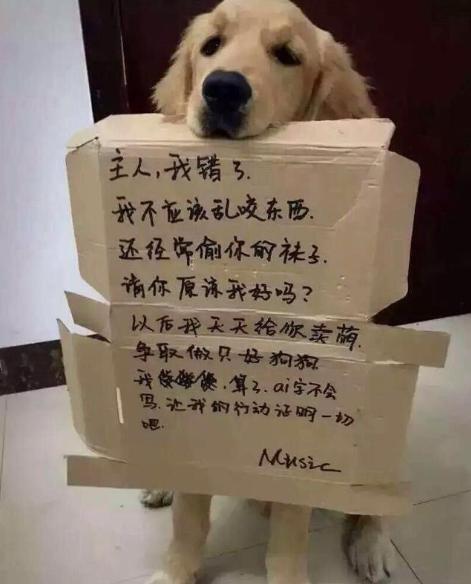 主人，我错了.
我不应该乱咬东西.
还经常偷你的袜子.
请你原谅我好吗？
以后我天天给你卖萌.
争取做只好狗狗.
我 . 算了. ai字不会
写. 让我的行动证明一切
吧.
Music